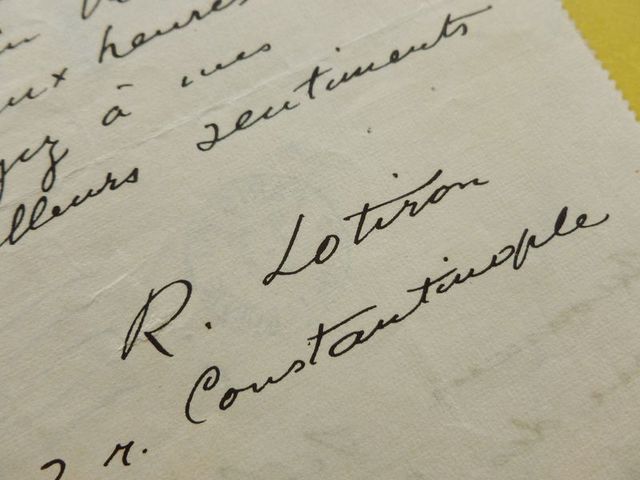 ux heures
à mes
lleurs sentiments
R. Lotiron
2 r. Constantinople